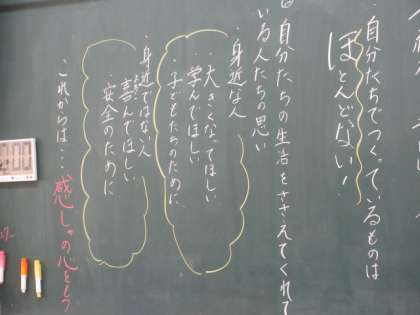 ・自分たちでつくっているものは
ほとんどない！
自分たちの生活をささえてくれて
いる人たちの思い
・身近な人
・大きくなってほしい
・学んでほしい
・子どもたちのために
・身近ではない人
・喜んでほしい
・安全のために
これからは…感しゃの心をもつ